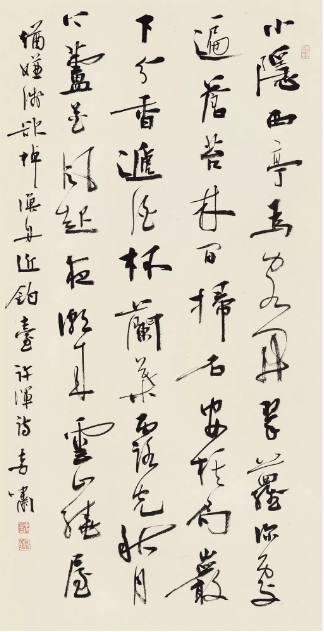 小隱西亭為客開翠蘿深處
遍蒼苔林間掃石安棋局巖
下分香遞酒杯蘭葉露光秋月
上蘆花風起夜潮來雲山繞屋
猶嫌淺欲棹漁舟近釣臺 許渾詩 嘯